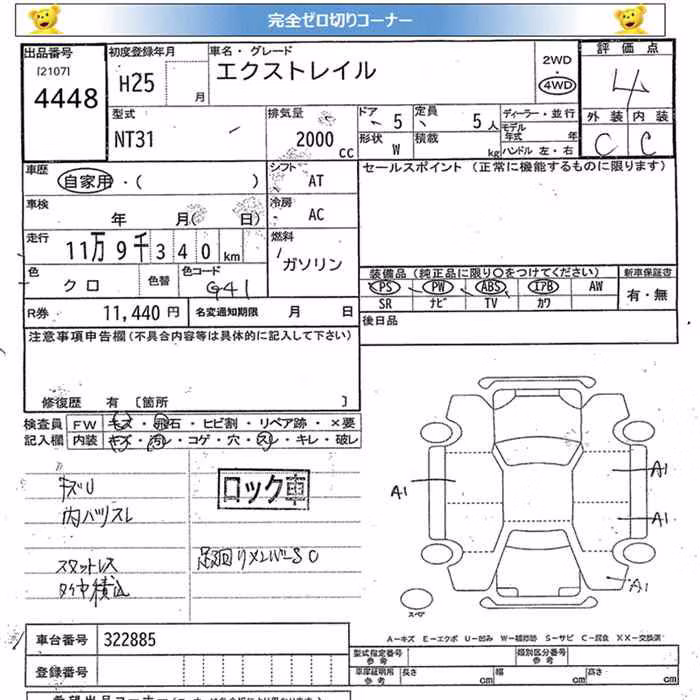 完全ゼロ切りコーナー
出品番号
[2107]
4448
初度登録年月
H25 月
車名・グレード
エクストレイル
2WD
4WD
評価点
4
外装 内装
C C
型式
NT31
排気量
2000 cc
ドア 5
形状 W
定員 5人
積載 kg
ディーラー・並行
モデル年式 年
ハンドル 左・右
車歴
自家用・( )
シフト AT
セールスポイント (正常に機能するものに限ります)
車検
年 月( 日)
冷房 AC
走行
11万9千340km
燃料
ガソリン
色
クロ
色替
色コード
G41
装備品 (純正品に限り○をつけてください)
新車保証書
PS PW ABS エアB AW
有・無
SR ナビ TV カワ
R券 11,440円
名変通知期限 月 日
後日品
注意事項申告欄(不具合内容等は具体的に記入して下さい)
修復歴 有 [箇所 ]
検査員記入欄
FW キズ・飛石・ヒビ割・リペア跡・×要
内装 キズ・汚レ・コゲ・穴・スレ・キレ・破レ
キズU
内バリスレ
ロック車
スタットレス
タイヤ積込
足廻リメンバーSO
A1
A1
A1
A1
スペア
A-キズ E-エクボ U-凹み W-補修跡 S-サビ C-腐食 XX-交換済
車台番号 322885
登録番号
型式指定番号 参考
類別区分番号 参考
車庫証明用 参考
長さ cm
幅 cm
高さ cm